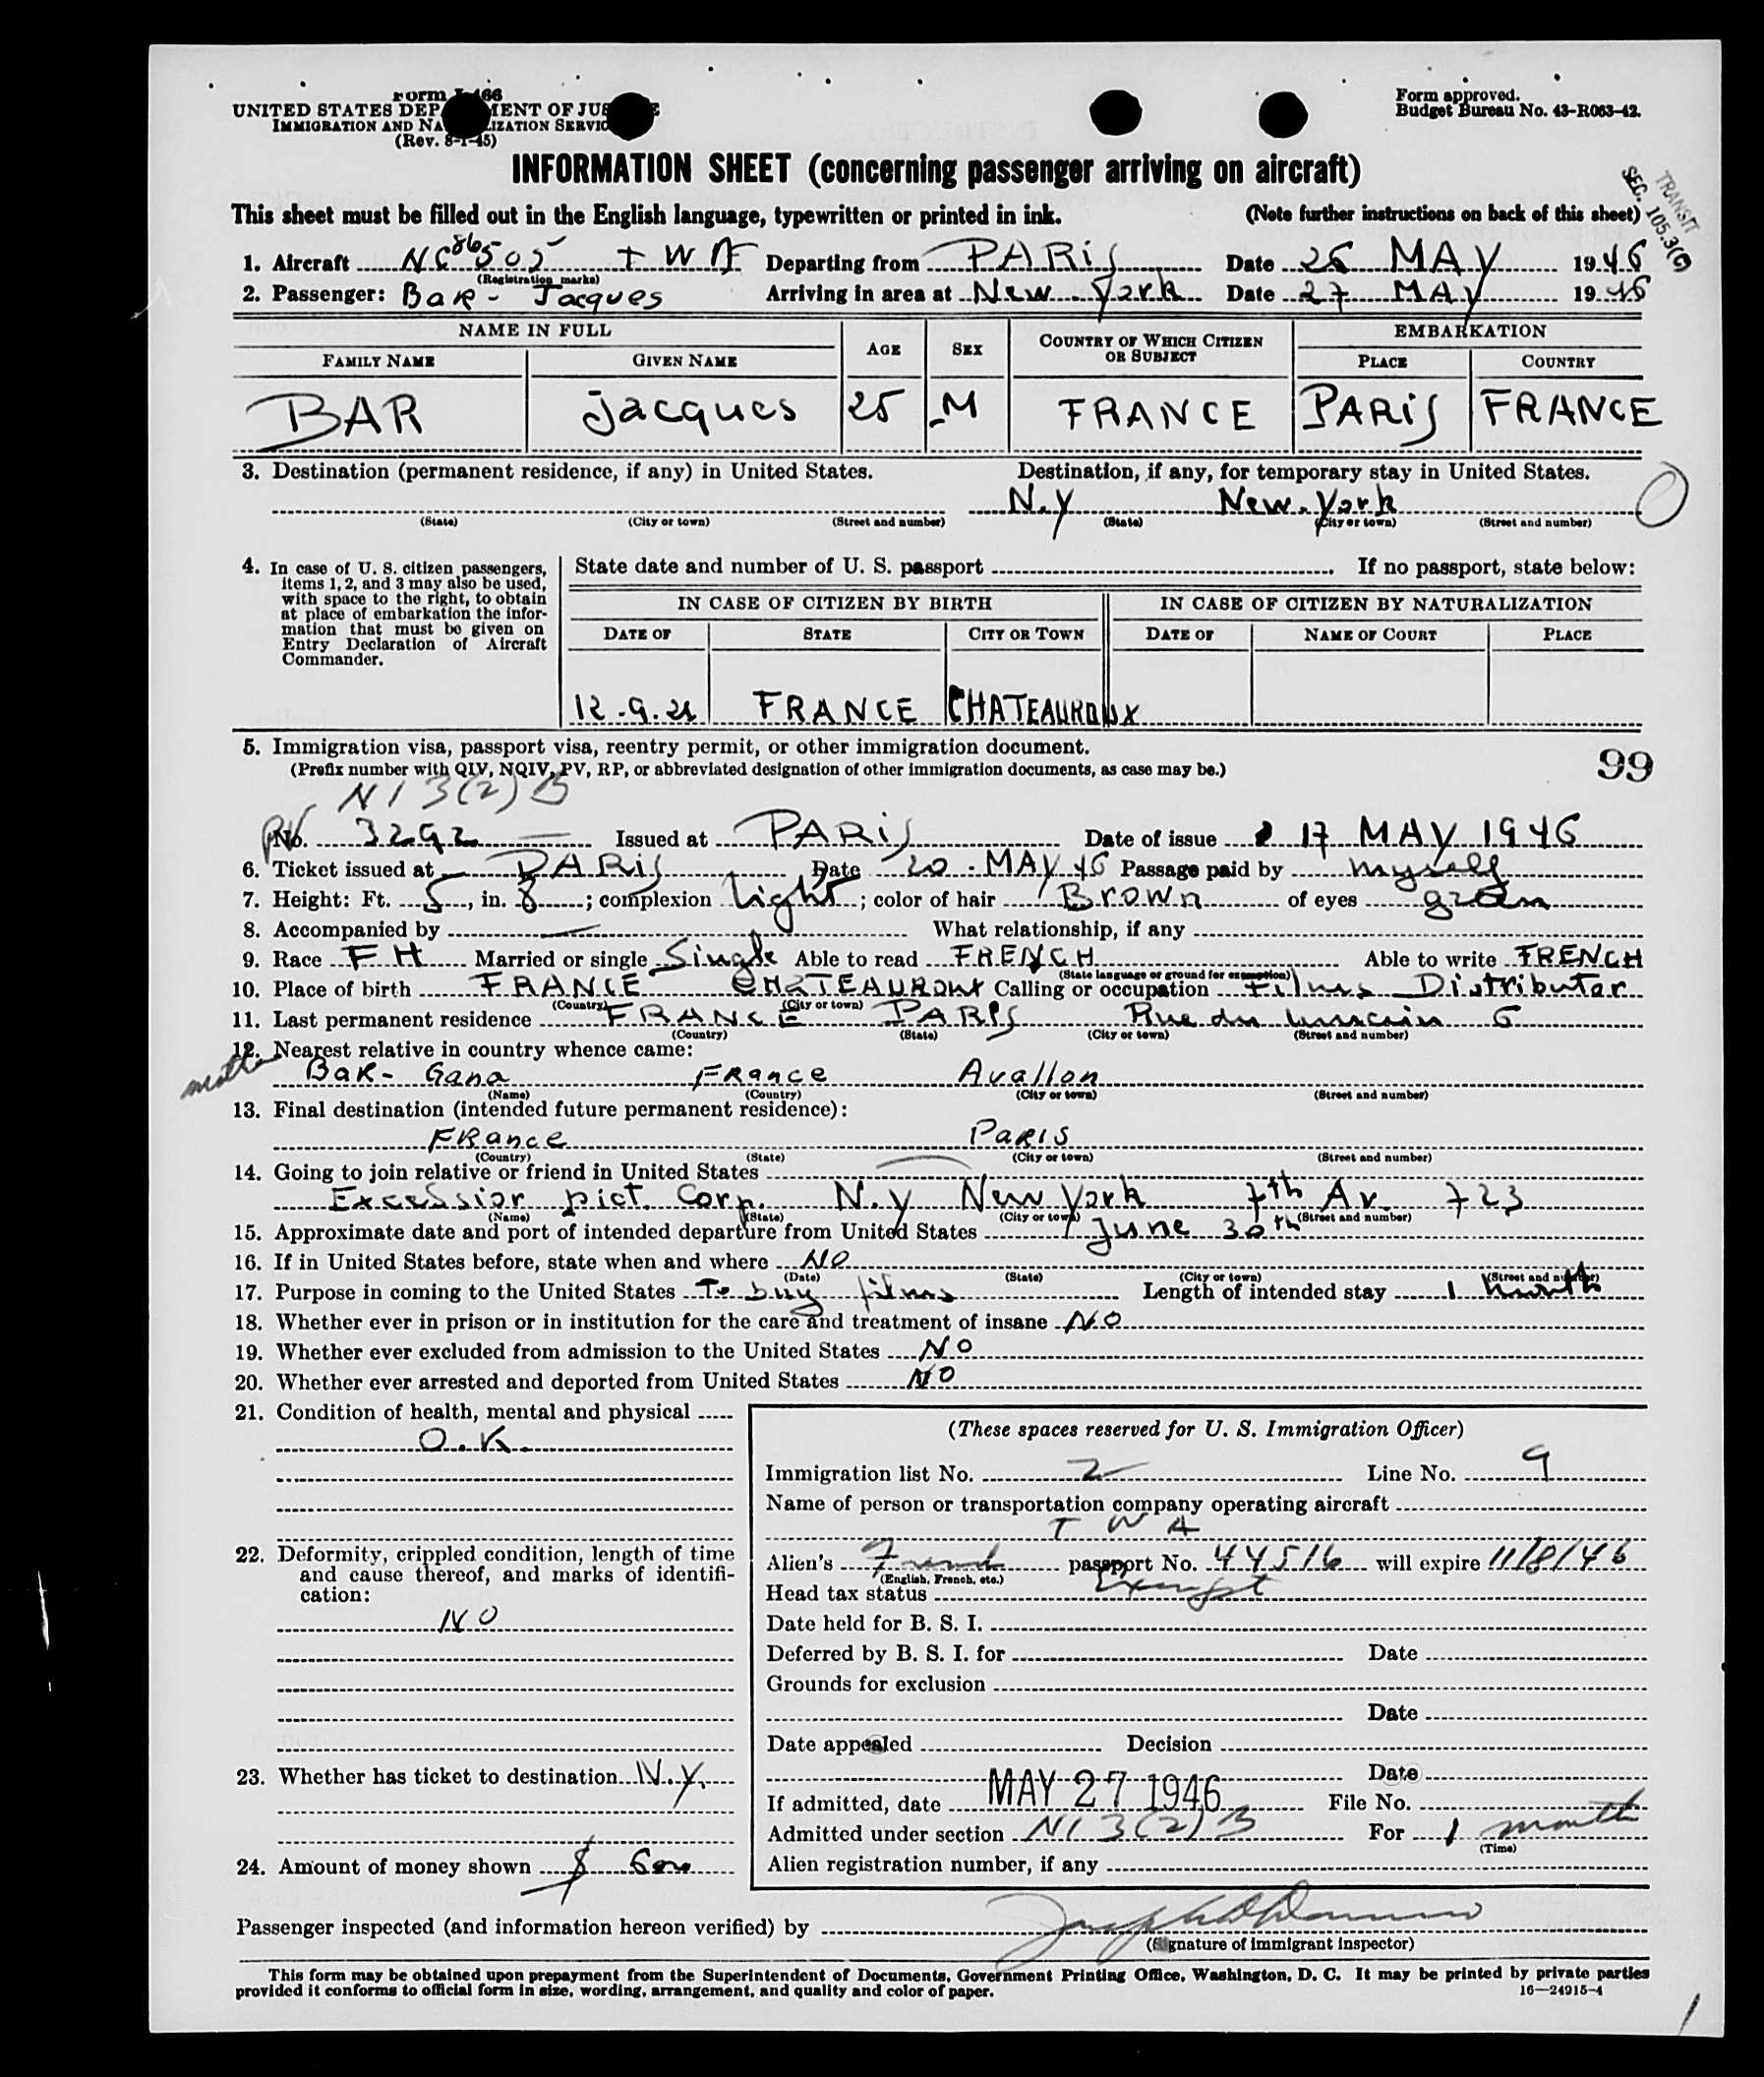 Form I-466
UNITED STATES DEPARTMENT OF JUSTICE
IMMIGRATION AND NATURALIZATION SERVICE
(Rev. 8-1-45)
Form approved.
Budget Bureau No. 43-R063-42.
INFORMATION SHEET (concerning passenger arriving on aircraft)
TRANSIT
SEC. 105.3(
This sheet must be filled out in the English language, typewritten or printed in ink. (Note further instructions on back of this sheet)
1. Aircraft NC 86505 TWA Departing from PARIS Date 26 MAY 1946
(Registration marks)
2. Passenger: Bar - Jacques Arriving in area at New York Date 27 MAY 1946
NAME IN FULL AGE SEX COUNTRY OF WHICH CITIZEN OR SUBJECT EMBARKATION
FAMILY NAME GIVEN NAME PLACE COUNTRY
BAR Jacques 25 M FRANCE PARIS FRANCE
3. Destination (permanent residence, if any) in United States. Destination, if any, for temporary stay in United States.
N.Y New-York
(State) (City or town) (Street and number) (State) (City or town) (Street and number)
4. In case of U. S. citizen passengers, items 1, 2, and 3 may also be used, with space to the right, to obtain at place of embarkation the information that must be given on Entry Declaration of Aircraft Commander.
State date and number of U. S. passport If no passport, state below:
IN CASE OF CITIZEN BY BIRTH IN CASE OF CITIZEN BY NATURALIZATION
DATE OF STATE CITY OR TOWN DATE OF NAME OF COURT PLACE
12.9.21 FRANCE CHATEAUROUX
5. Immigration visa, passport visa, reentry permit, or other immigration document.
(Prefix number with QIV, NQIV, PV, RP, or abbreviated designation of other immigration documents, as case may be.)
99
NI 3(2) B
PV No. 3292 Issued at PARIS Date of issue 17 MAY 1946
6. Ticket issued at PARIS Date 20 . MAY 46 Passage paid by myself
7. Height: Ft. 5, in. 8; complexion light; color of hair Brown of eyes green
8. Accompanied by — What relationship, if any
9. Race FH Married or single Single Able to read FRENCH Able to write FRENCH
(State language or ground for exemption)
10. Place of birth FRANCE CHATEAUROUX Calling or occupation Films Distributor
(Country) (City or town)
11. Last permanent residence FRANCE PARIS Rue du 6
(Country) (State) (City or town) (Street and number)
12. Nearest relative in country whence came:
mother Bar - Gana France Avallon
(Name) (Country) (City or town) (Street and number)
13. Final destination (intended future permanent residence):
France Paris
(Country) (State) (City or town) (Street and number)
14. Going to join relative or friend in United States
Excessior pict. Corp. N.Y New York 7th Av. 723
(Name) (State) (City or town) (Street and number)
15. Approximate date and port of intended departure from United States June 30th
16. If in United States before, state when and where NO
(Date) (State) (City or town) (Street and number)
17. Purpose in coming to the United States To buy films Length of intended stay 1 month
18. Whether ever in prison or in institution for the care and treatment of insane NO
19. Whether ever excluded from admission to the United States NO
20. Whether ever arrested and deported from United States NO
21. Condition of health, mental and physical
O.K.
22. Deformity, crippled condition, length of time and cause thereof, and marks of identification:
NO
23. Whether has ticket to destination N.Y.
24. Amount of money shown $ 600
(These spaces reserved for U. S. Immigration Officer)
Immigration list No. 2 Line No. 9
Name of person or transportation company operating aircraft
T W A
Alien's French passport No. 44516 will expire 11/8/46
(English, French, etc.)
Head tax status Exempt
Date held for B. S. I.
Deferred by B. S. I. for Date
Grounds for exclusion
Date
Date appealed Decision
Date
If admitted, date MAY 27 1946 File No.
Admitted under section NI 3(2) B For 1 month
(Time)
Alien registration number, if any
Passenger inspected (and information hereon verified) by
(Signature of immigrant inspector)
This form may be obtained upon prepayment from the Superintendent of Documents, Government Printing Office, Washington, D. C. It may be printed by private parties
provided it conforms to official form in size, wording, arrangement, and quality and color of paper.
16—24915-4